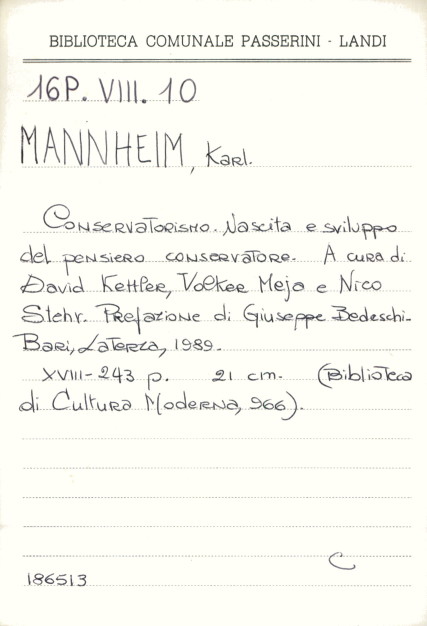 BIBLIOTECA COMUNALE PASSERINI - LANDI
16P. VIII. 10
MANNHEIM, Karl.
Conservatorismo. Nascita e sviluppo
del pensiero conservatore. A cura di
David Kettler, Volker Meja e Nico
Stehr. Prefazione di Giuseppe Bedeschi-
Bari, Laterza, 1989.
XVIII-243 p. 21 cm. (Biblioteca
di Cultura Moderna, 966).
C
186513